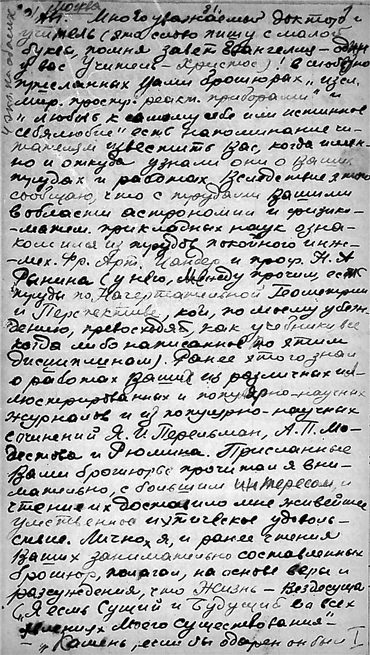 Москва
Многоуважаемый доктор и
учитель (это слово пишу с малой
буквы, помня завет Евангелия – один
у вас Учитель – Христос)! В любезно
присланных Вами брошюрах „Изсл.
мир. простр. реакт. приборами" и
„Любовь к самому себе или истинное
себялюбие" есть напоминание чи-
тателям известить Вас, когда имен-
но и откуда узнали они о Ваших
трудах и работах. Вследствие этого
сообщаю, что с трудами Вашими
в области астрономии и физико-
матем. прикладных наук озна-
комился из трудов покойного инж-
мех. Фр. Арт. Цандер и проф. Н. А.
Рынина (у него, между прочим, есть
труды по Начертательной Геометрии
и Перспективе, кои, по моему убеж-
дению, превосходят, как учебники все
когда либо написанное по этим
дисциплинам). Ранее этого знал
о работах Ваших из различных ил-
люстрированных и популярно-научных
журналов и из популярно-научных
сочинений Я. И. Перельман, А. П. Мо-
дестова и Рюмина. Присланные
Вами брошюры прочитал я вни-
мательно, с большим интересом, и
чтение их доставило мне живейшее
умственное и этическое удоволь-
ствие. Лично, я, и ранее чтения
Ваших занимательно составленных
брошюр, полагал, на основе веры и
рассуждения, что Жизнь – Вездесуща
(„Я есмь Сущий и Будущий во всех
явлениях Моего существования" –
– „Камень, если бы одарен он был